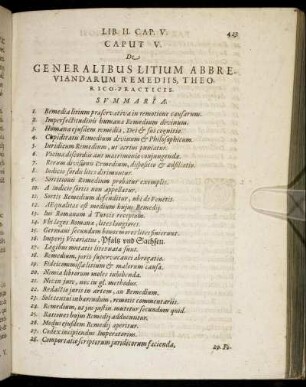 LIB. II. CAP. V. 423
CAPUT V.
De
GENERALIBUS LITIUM ABBRE-
VIANDARUM REMEDIIS, THEO-
RICO-PRACTICIS.
SUMMARIA.
1. Remedia litium praeservativa in remotione causarum.
2. Imperfectitudinis humanae Remedium divinum.
3. Humanae ejusdem remedia, Dei & sui cognitio.
4. Cupiditatis Remedium divinum & Philosophicum.
5. Juridicum Remedium, ut acrius puniatur.
6.
7. Rerum divisionis Remedium,
8. Judicio sortis lites dirimuntur.
9. Sortitionis Remedium probatur exemplis.
10. A judicio sortis non appellatur.
11. Sortis Remedium defenditur, ubi de Venetis.
12.
13. Jus Romanum à Turcis receptum.
14. Ubi leges Romanae, lites longiores.
15. Germani secundum bonos mores lites finierunt.
16. Imperij Vicariatus, Pfaltz und Sachsen.
17. Legibus mutatis literatura sunt.
18. Remedium, juris supervacanei abrogatio.
19. Fideicommissi latium & malorum causa.
20. Nimia librorum moles tollenda.
21. Notae jure, nec in gl. methodus.
22. Redactio juris in artem, an Remedium.
23. Solicitatis in barendum, remotis commentariis.
24. Remedium, ut jus justin. mutetur secundum quid.
25. Rationes hujus Remedij adducuntur.
26. Modus ejusdem Remedij aperitur.
27. Codex incipiendus Imperatorius.
28. Comportatio scriptorum juridicorum facienda,
29. Po-